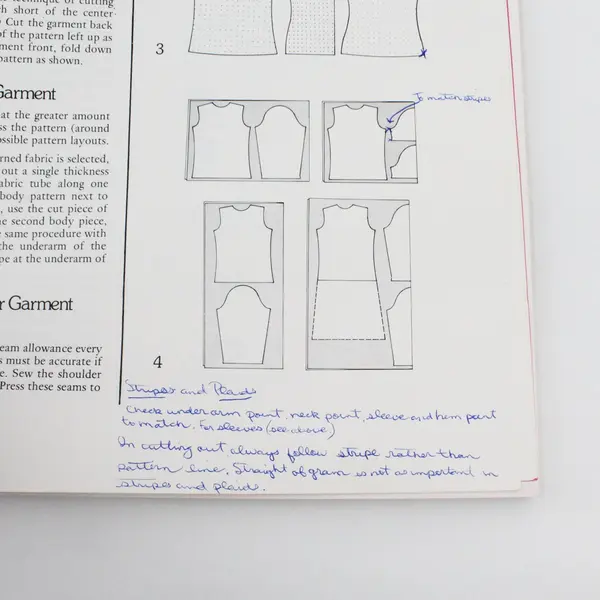 technique of cutting
h short of the center-
Cut the garment back
of the pattern left up as
ment front, fold down
pattern as shown.
Garment
at the greater amount
ss the pattern (around
ossible pattern layouts.
rned fabric is selected,
out a single thickness
abric tube along one
body pattern next to
, use the cut piece of
e second body piece,
same procedure with
the underarm of the
pe at the underarm of
r Garment
eam allowance every
s must be accurate if
e. Sew the shoulder
Press these seams to
3
To match stripes
4
Stripes and Plaids
Check under arm point, neck point, sleeve and hem point
to match. For sleeves (see above)
In cutting out, always follow stripe rather than
pattern line. Straight of grain is not as important in
stripes and plaids.